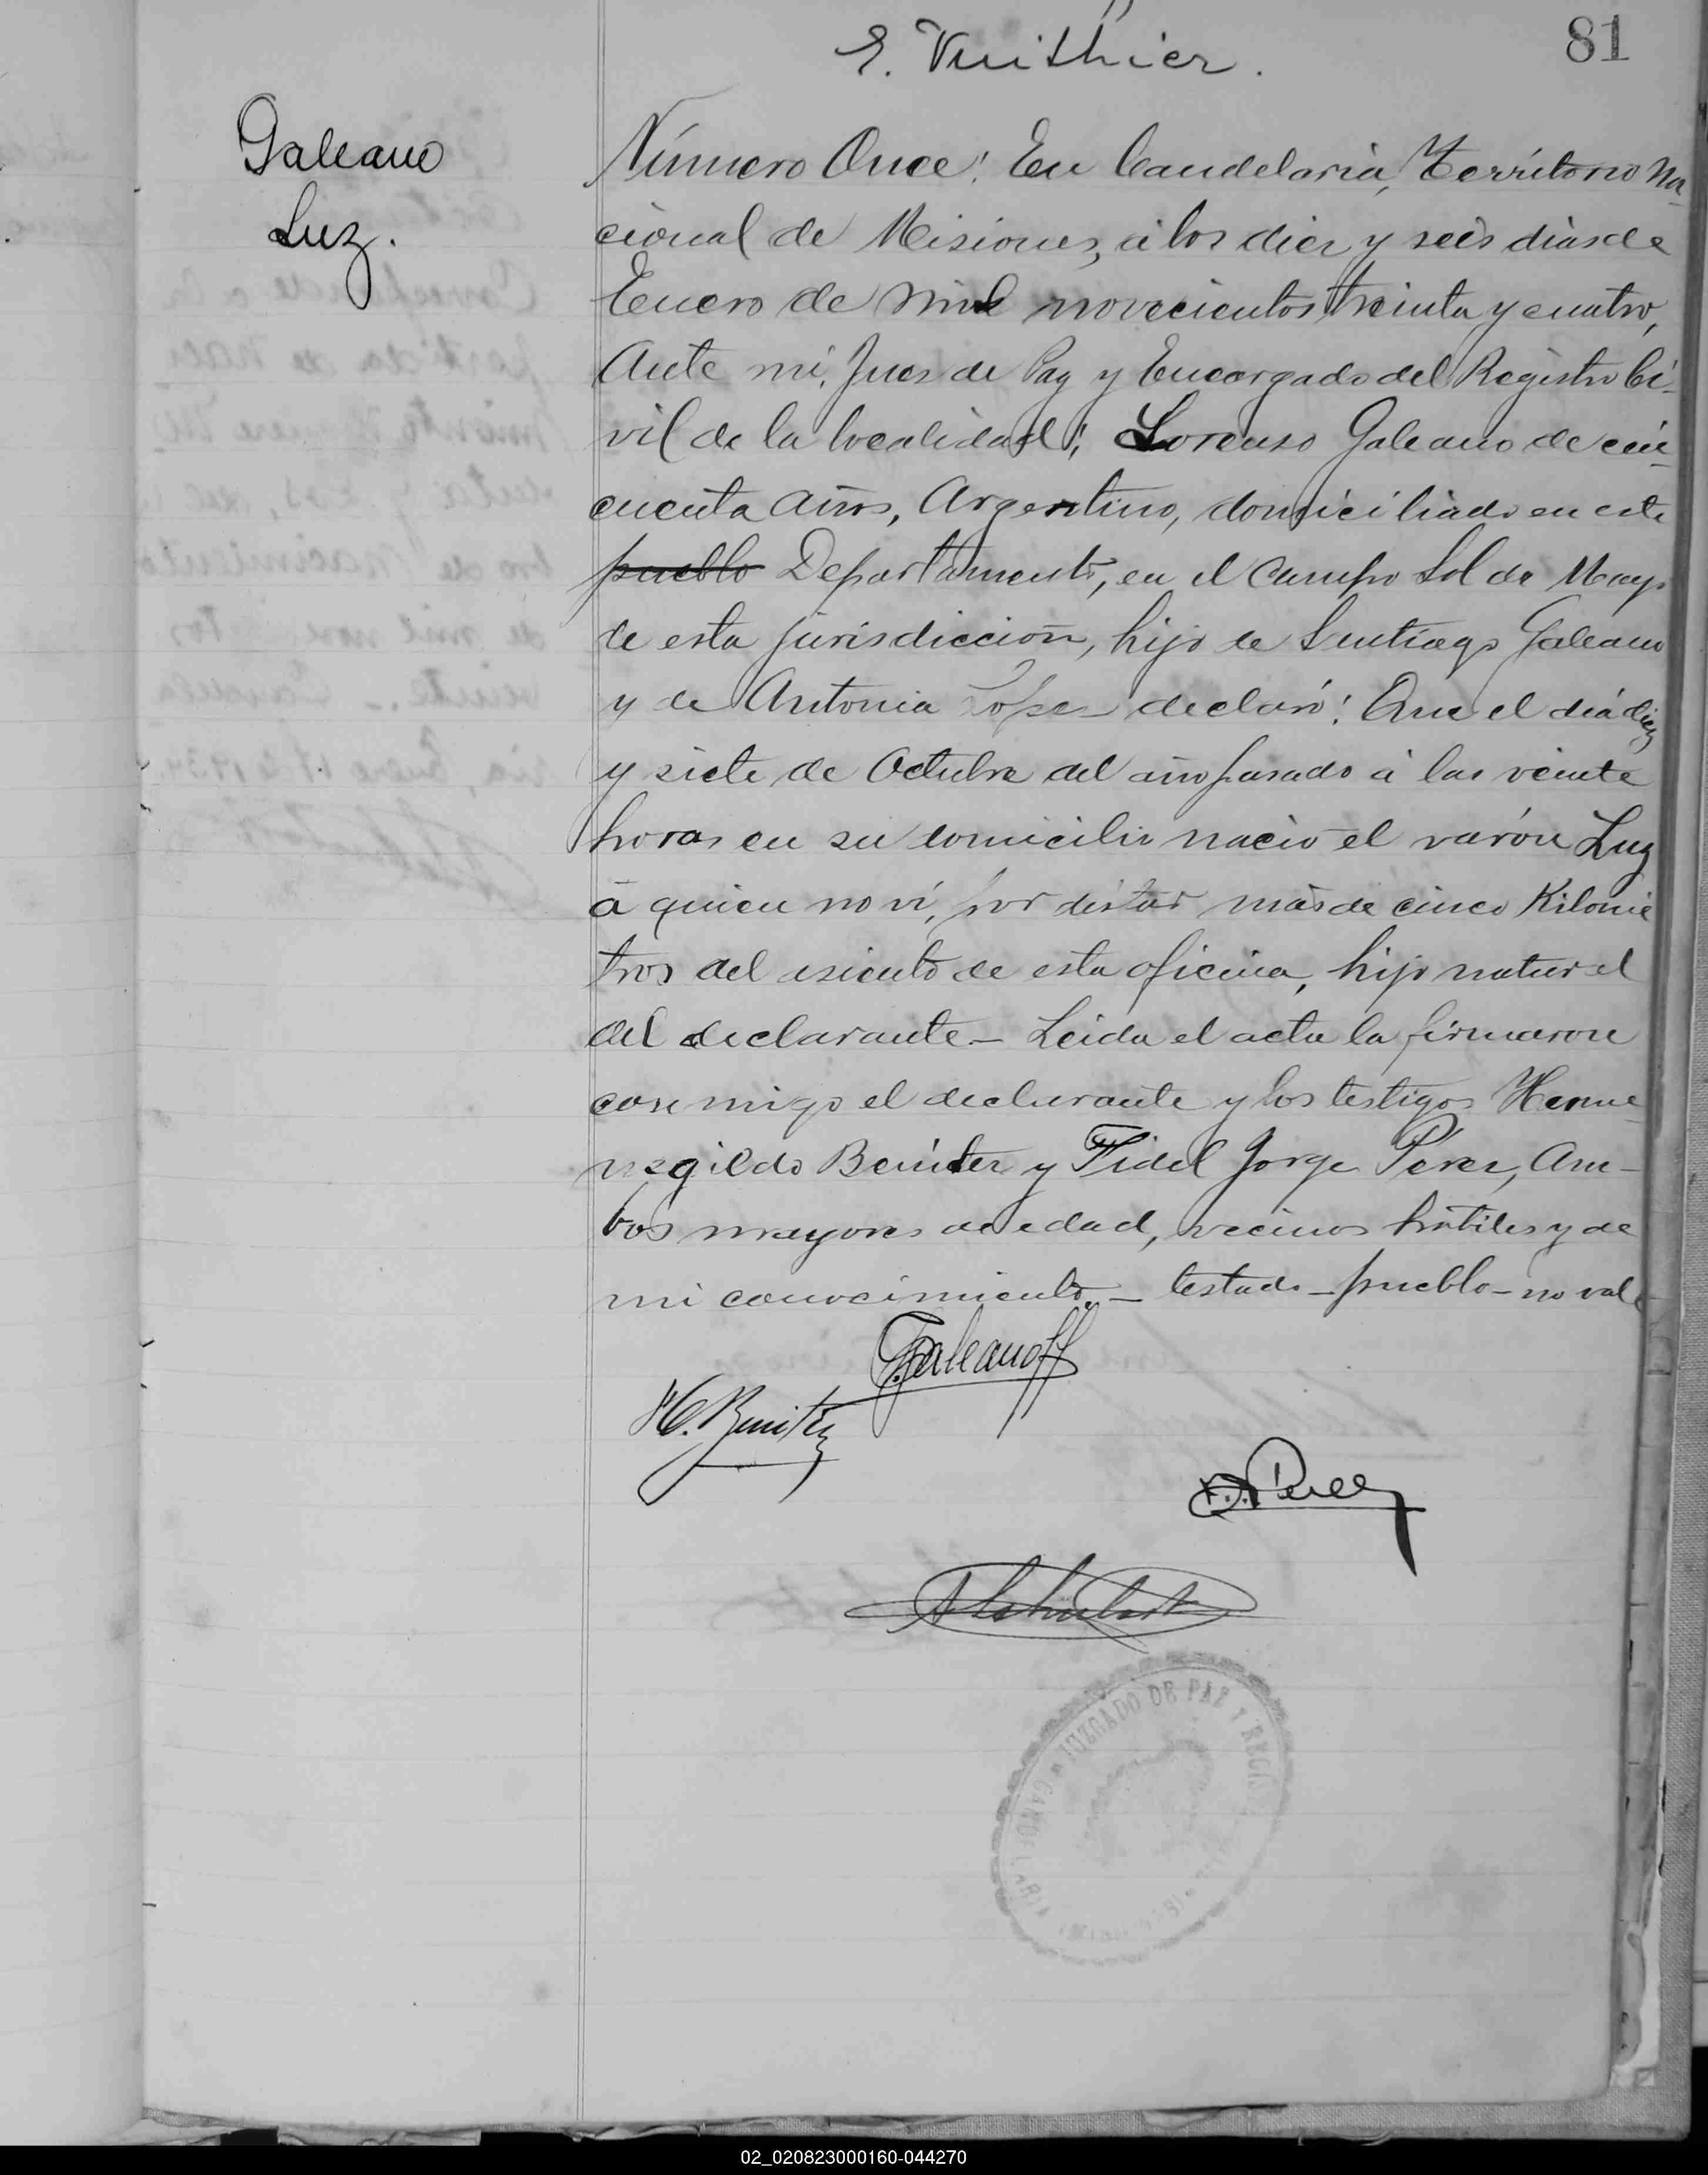 E. Vuithier.
81
Galeano
Luz.
Número Once: En Candelaria, Território Na
cional de Misiones, á los diez y seis dias de
Enero de mil novecientos treinta y cuatro,
Ante mi, Juez de Paz y Encargado del Registro Ci-
vil de la localidad; Lorenzo Galeano de cin-
cuenta años, Argentino, domiciliado en este
pueblo Departamento, en el Campo Sol de Mayo
de esta jurisdicción, hijo de Santiago Galeano
y de Antonia Lopez declaró: Que el día diez
y siete de Octubre del año pasado á las veinte
horas en su domicilio nació el varón Luz
á quien no ví, por distar más de cinco Kilome
tros del asiento de esta oficina, hijo natural
del declarante.- Leida el acta la firmaron
conmigo el declarante y los testigos Herme-
negildo Benítez y Fidel Jorge Pérez, Am-
bos mayores de edad, vecinos hábiles y de
mi conocimiento.- testado - pueblo - no vale
Galeano
H. Benitez
F. J. Perez
A Schubert
JUZGADO DE PAZ Y REGIS
CANDELARIA
02_020823000160-044270